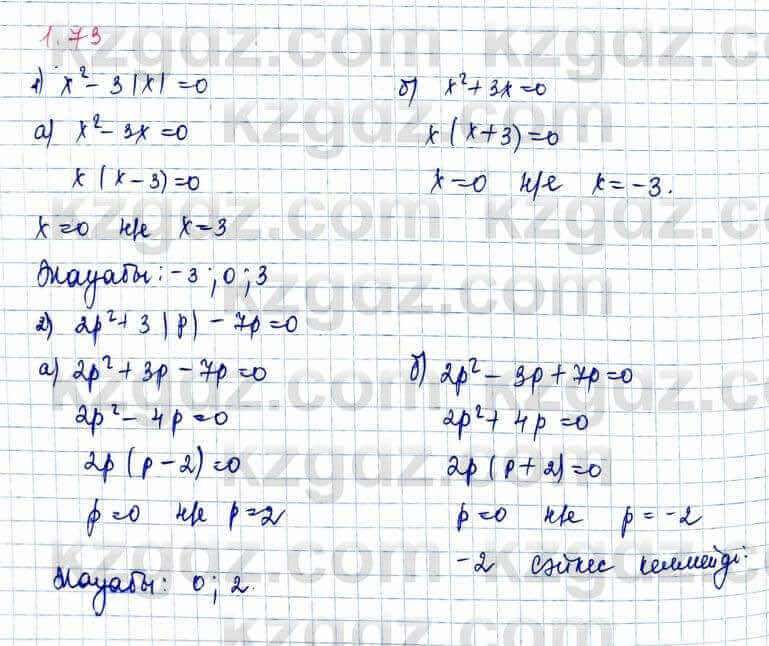 1.73
1) x² - 3|x| = 0
а) x² - 3x = 0
x(x-3) = 0
x = 0 н/е x = 3
б) x² + 3x = 0
x(x+3) = 0
x = 0 н/е x = -3.
Жауабы: -3; 0; 3
2) 2p² + 3|p| - 7p = 0
а) 2p² + 3p - 7p = 0
2p² - 4p = 0
2p(p-2) = 0
p = 0 н/е p = 2
б) 2p² - 3p + 7p = 0
2p² + 4p = 0
2p(p+2) = 0
p = 0 н/е p = -2
-2 сәйкес келмейді.
Жауабы: 0; 2.
kzgdz.com